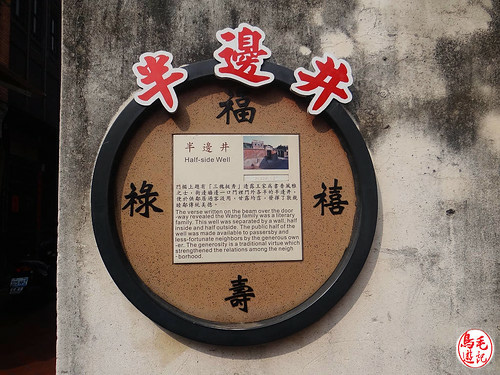 半邊井
福
祿
禧
壽
半邊井
Half-side Well
門楣上題有「三槐挺秀」透露王家為書香風雅
之士，街邊牆邊一口門裡門外各半的半邊井，
The verse written on the beam over the door
-way revealed the Wang family was a literary
family. This well was separated by a wall, half
inside and half outside. The public half of the
well was made available to passersby and
less-fortunate neighbors by the generous own
-er. The generosity is a traditional virtue which
strengthened the relations among the neigh
-borhood.
鳥毛
遊記